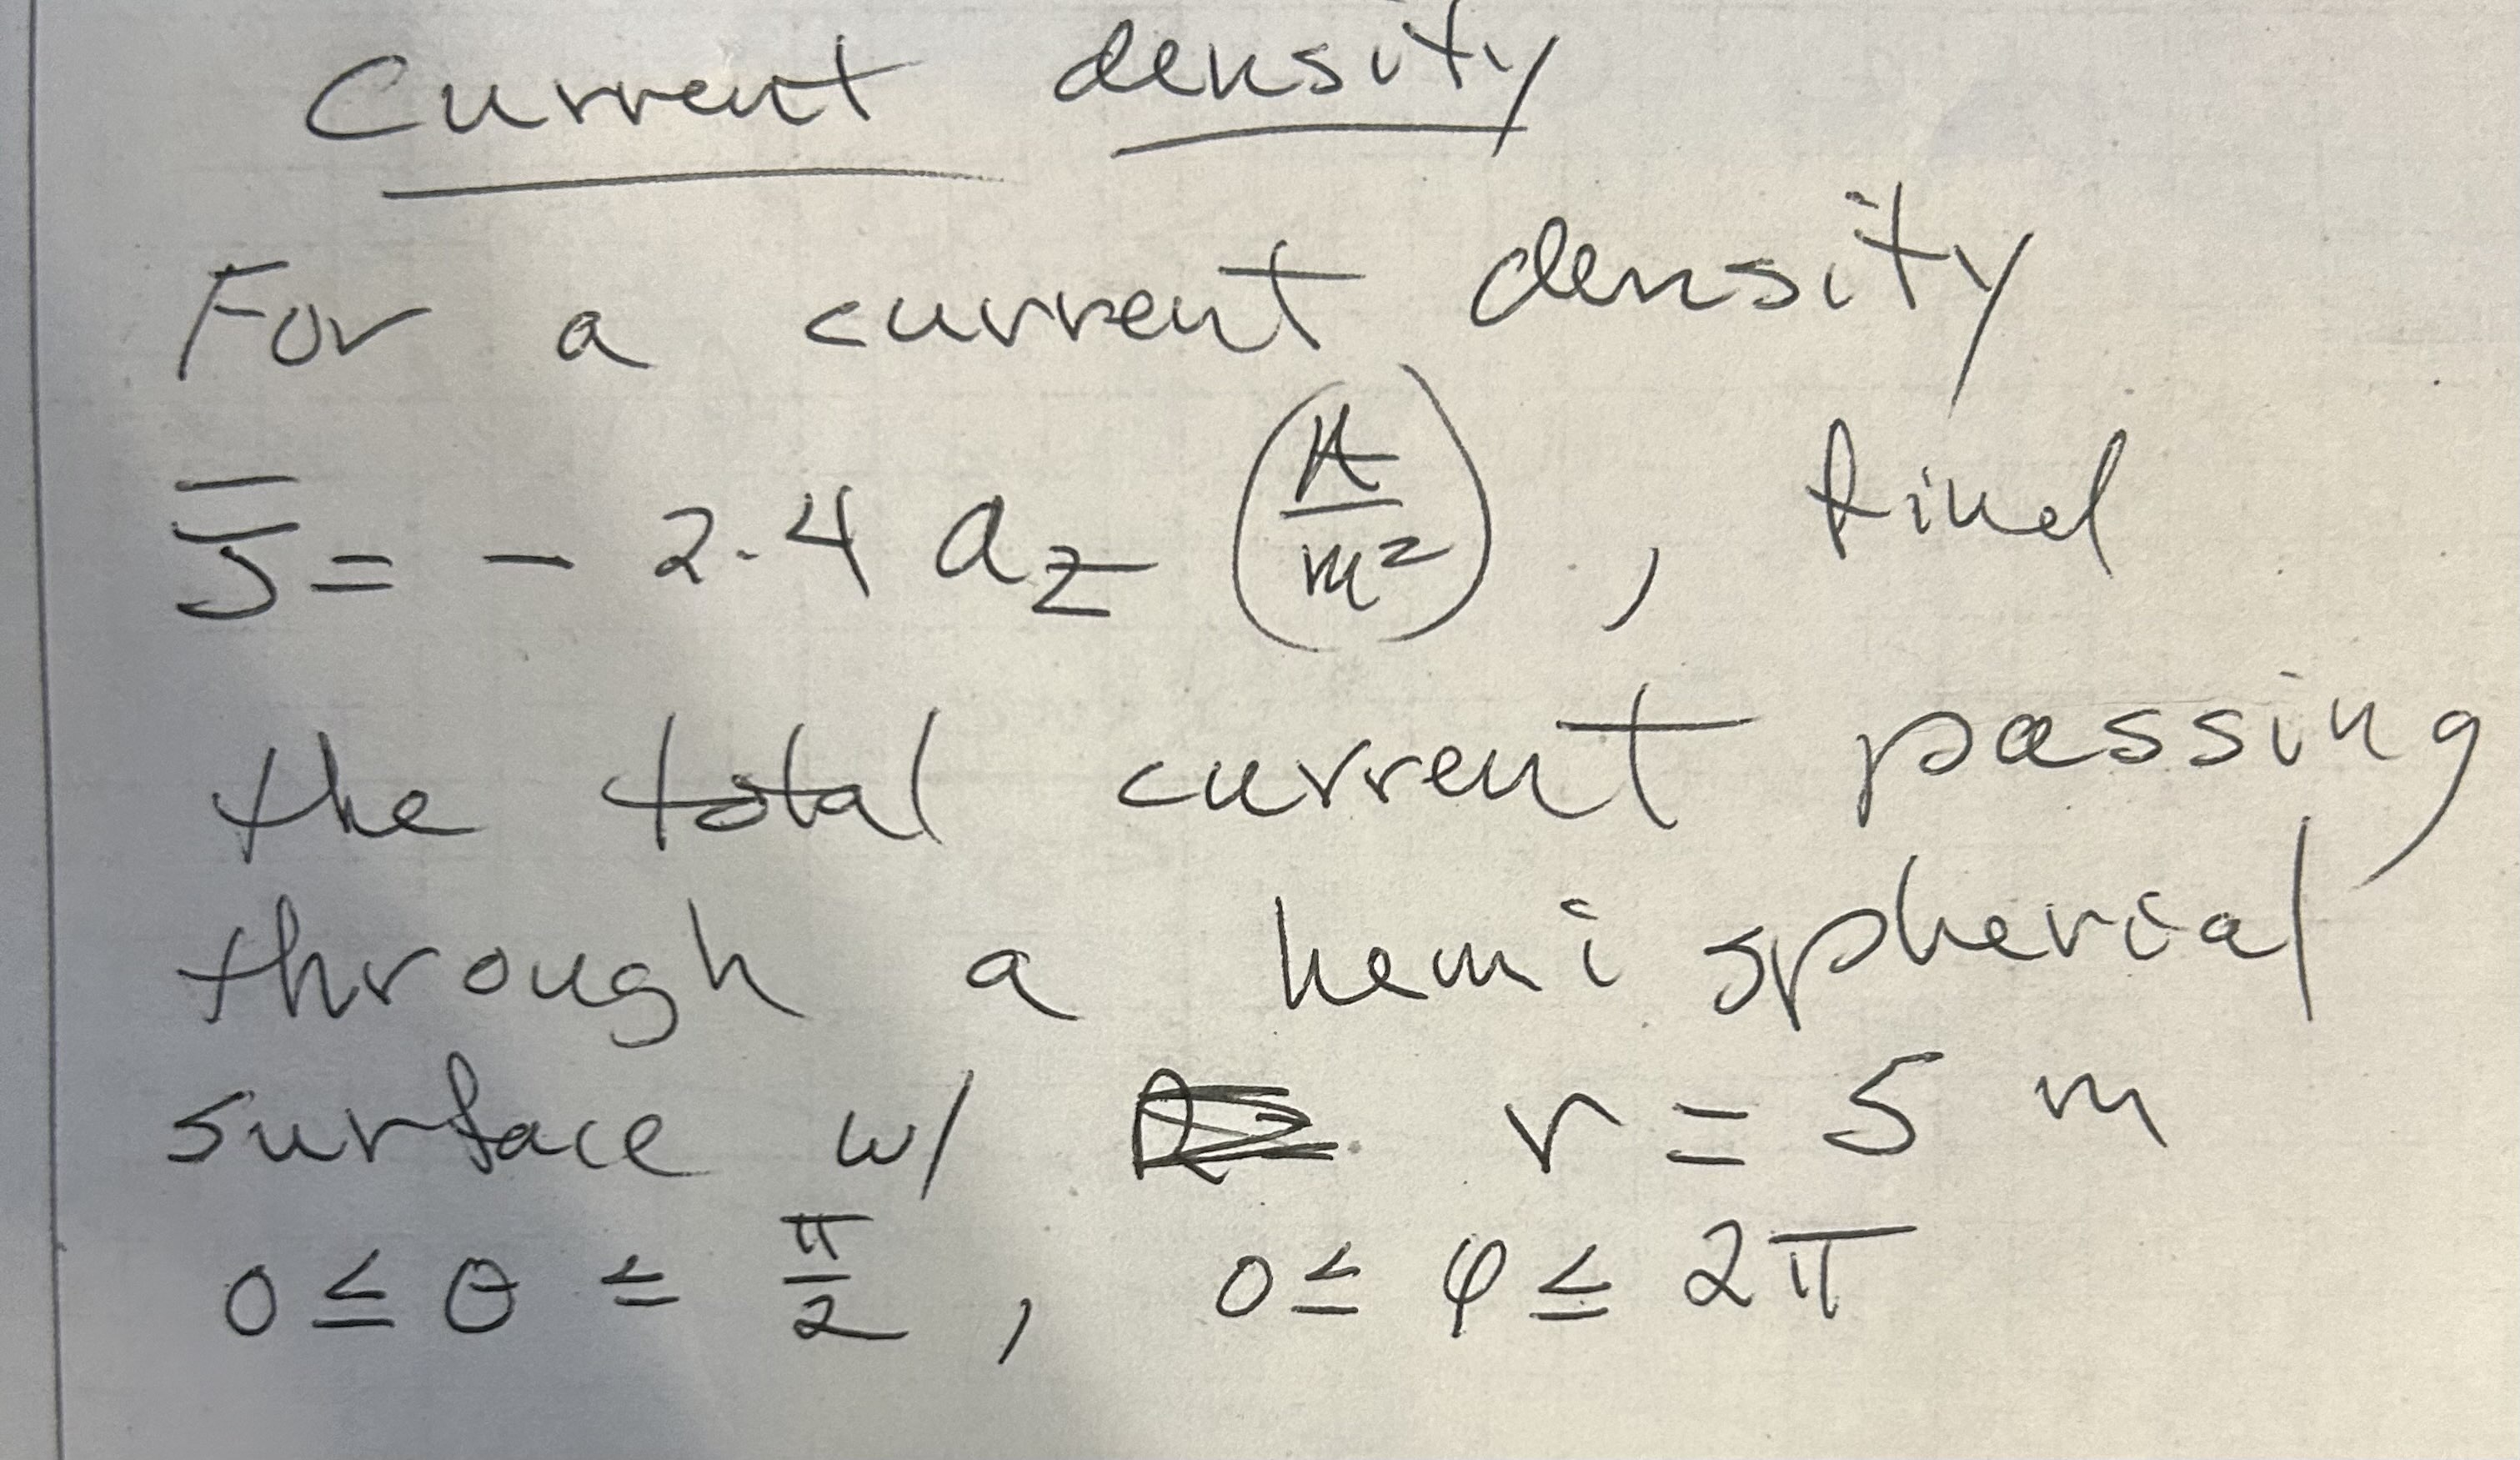 Current density
For a current density
J̅ = - 2.4 a_z (A/m²), find
the total current passing
through a hemi spherial
surface w/ r = 5 m
0 ≤ θ ≤ π/2, 0 ≤ φ ≤ 2π